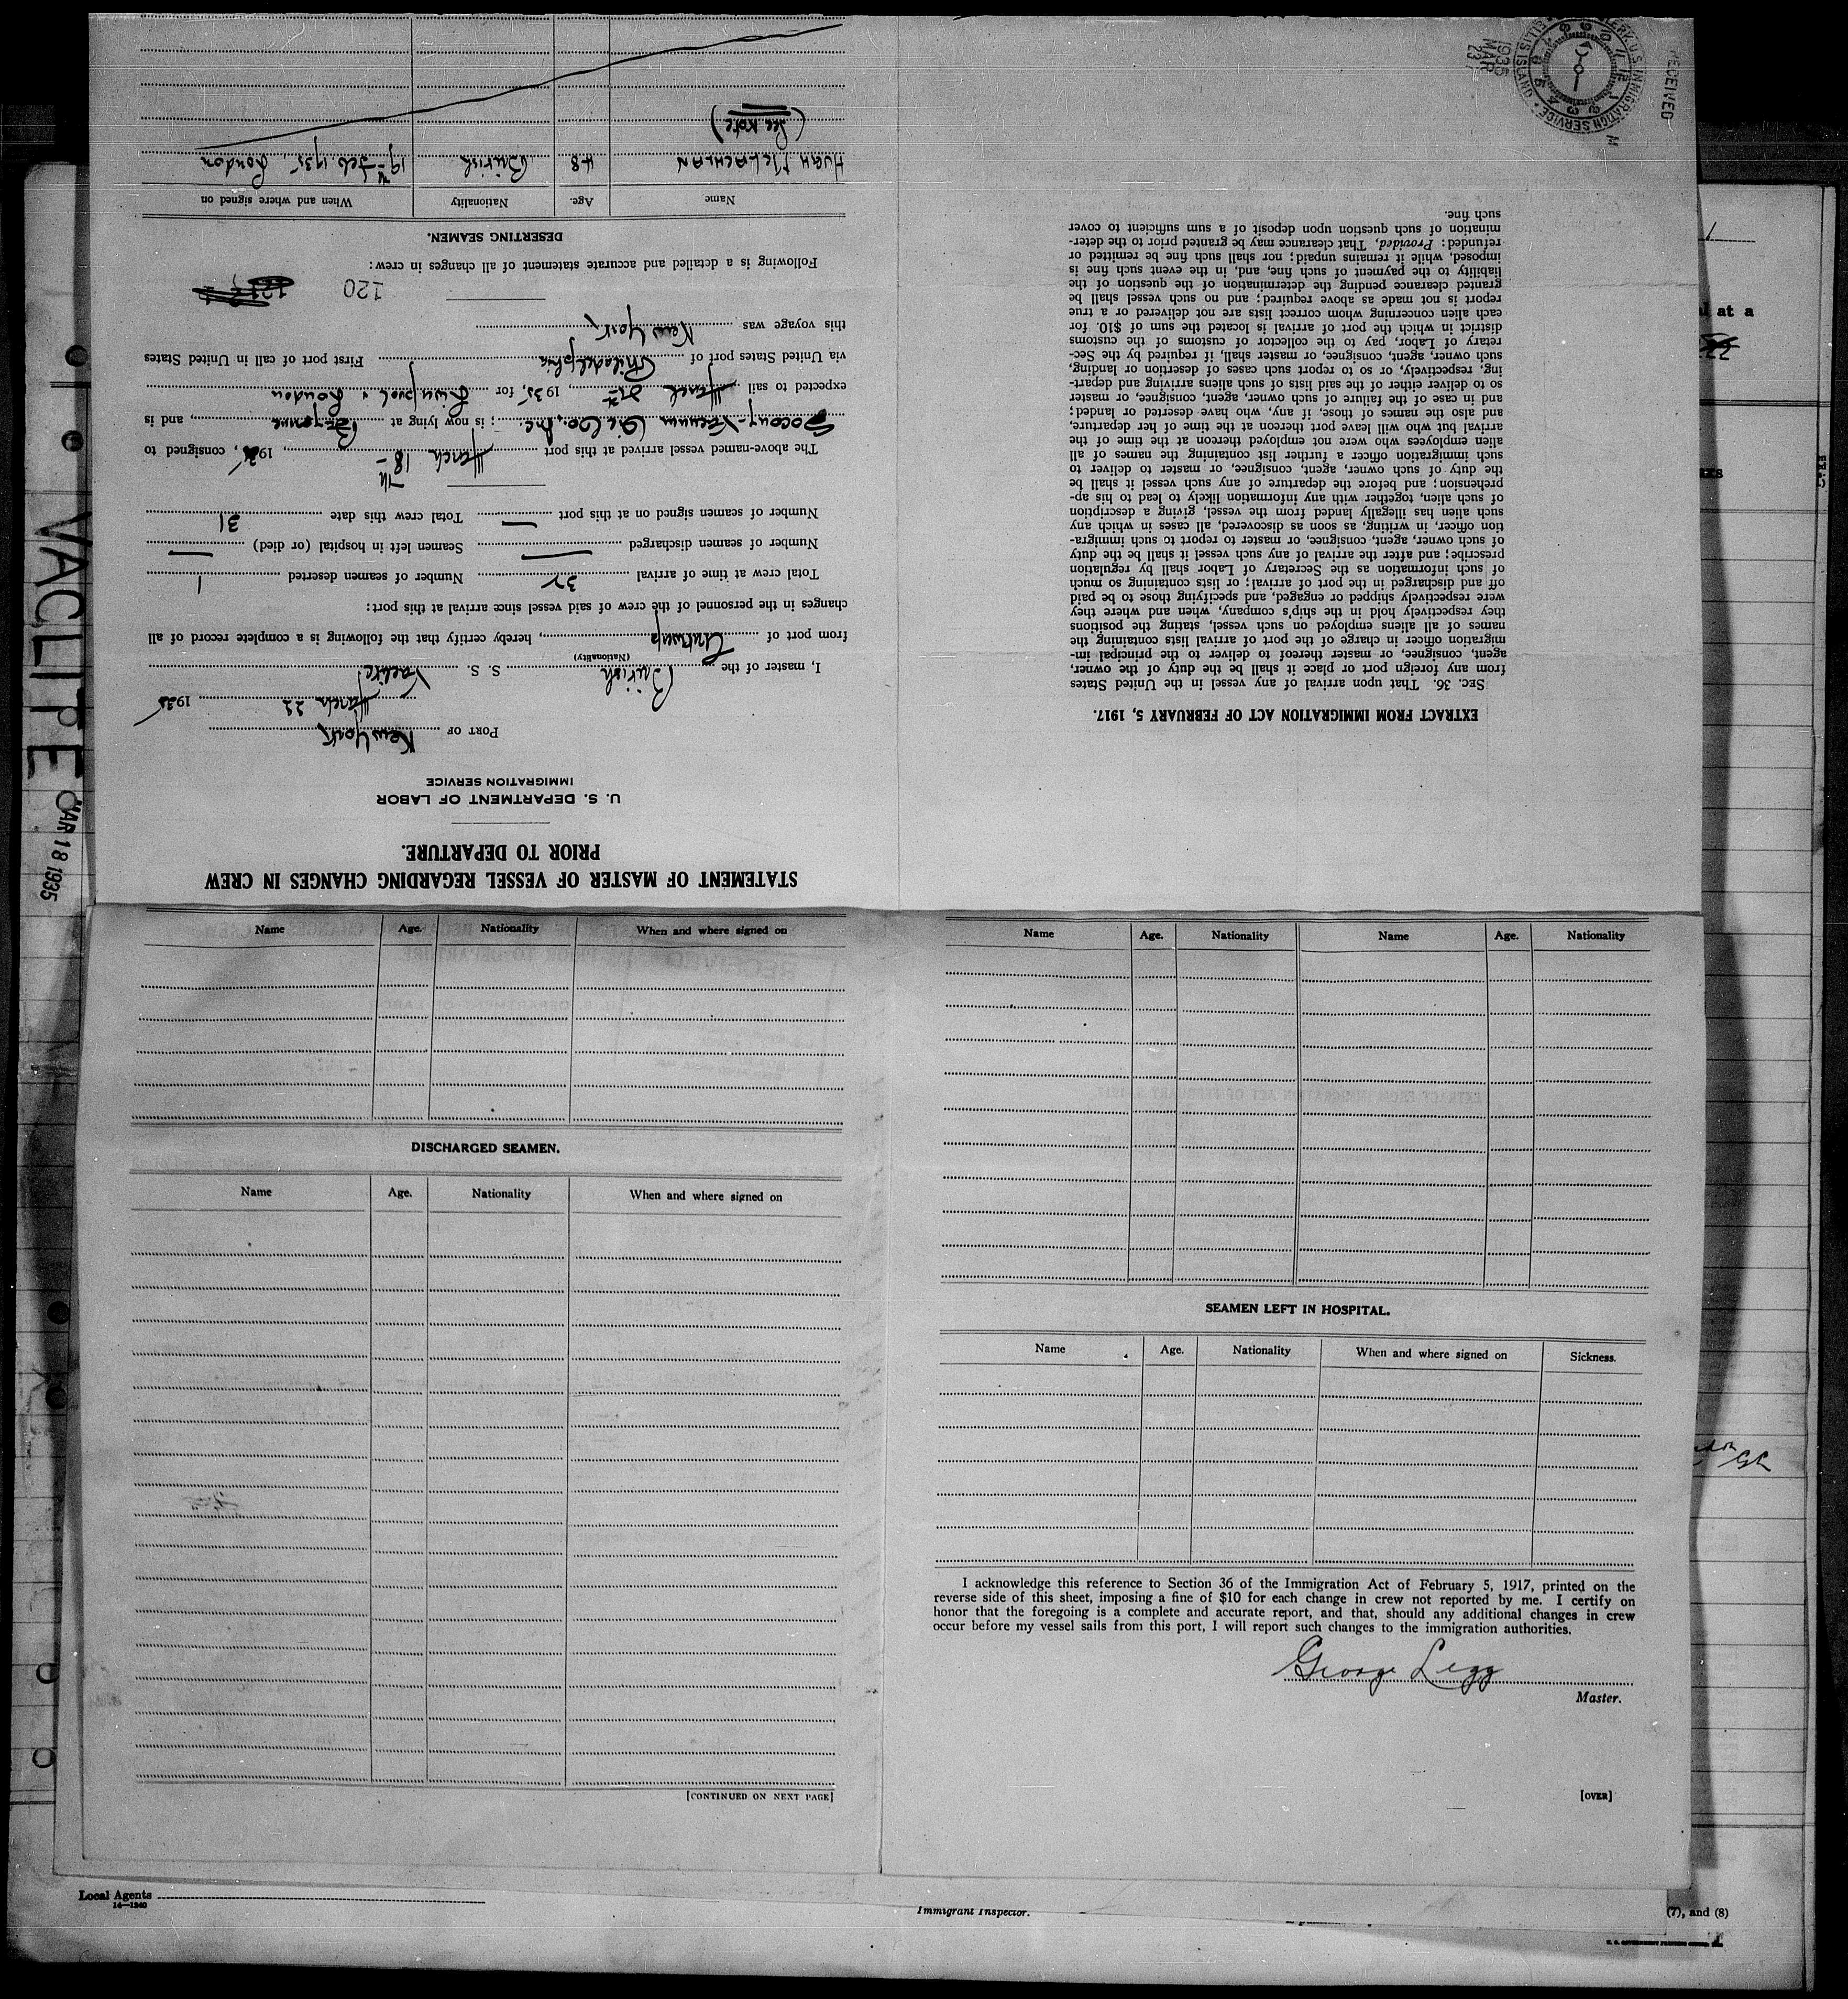 STATEMENT OF MASTER OF VESSEL REGARDING CHANGES IN CREW
PRIOR TO DEPARTURE.
U. S. DEPARTMENT OF LABOR
IMMIGRATION SERVICE
PORT OF New York
March 22 1935
I, master of the British S. S. Vaclite
(Nationality)
from port of Antwerp, hereby certify that the following is a complete record of all
changes in the personnel of the crew of said vessel since arrival at this port:
Total crew at time of arrival 32 Number of seamen deserted 1
Number of seamen discharged — Seamen left in hospital (or died) —
Number of seamen signed on at this port — Total crew this date 31
The above-named vessel arrived at this port March 18th, 1935, consigned to
Socony-Vacuum Oil Co., Inc.; is now lying at Bayonne, and is
expected to sail March, 1935, for Liverpool & London
via United States port of Philadelphia First port of call in United States
this voyage was New York
120
Following is a detailed and accurate statement of all changes in crew:
DESERTING SEAMEN.
Name Age. Nationality When and where signed on
HUGH McLACHLAN 48 British 19th Feb. 1935, London
(See note)
EXTRACT FROM IMMIGRATION ACT OF FEBRUARY 5, 1917.
SEC. 36. That upon arrival of any vessel in the United States
from any foreign port or place it shall be the duty of the owner,
agent, consignee, or master thereof to deliver to the principal im-
migration officer in charge of the port of arrival lists containing the
names of all aliens employed on such vessel, stating the positions
they respectively hold in the ship's company, when and where they
were respectively shipped or engaged, and specifying those to be paid
off and discharged in the port of arrival; or lists containing so much
of such information as the Secretary of Labor shall by regulation
prescribe; and after the arrival of any such vessel it shall be the duty
of such owner, agent, consignee, or master to report to such immigra-
tion officer, in writing, as soon as discovered, all cases in which any
such alien has illegally landed from the vessel, giving a description
of such alien, together with any information likely to lead to his ap-
prehension; and before the departure of any such vessel it shall be
the duty of such owner, agent, consignee, or master to deliver to
such immigration officer a further list containing the names of all
alien employees who were not employed thereon at the time of the
arrival but who will leave port thereon at the time of her departure,
and also the names of those, if any, who have deserted or landed;
and in case of the failure of such owner, agent, consignee, or master
so to deliver either of the said lists of such aliens arriving and depart-
ing, respectively, or so to report such cases of desertion or landing,
such owner, agent, consignee, or master shall, if required by the Sec-
retary of Labor, pay to the collector of customs of the customs
district in which the port of arrival is located the sum of $10. for
each alien concerning whom correct lists are not delivered or a true
report is not made as above required; and no such vessel shall be
granted clearance pending the determination of the question of the
liability to the payment of such fine, and, in the event such fine is
imposed, while it remains unpaid; nor shall such fine be remitted or
refunded: Provided, That clearance may be granted prior to the deter-
mination of such question upon deposit of a sum sufficient to cover
such fine.
RECEIVED
1935 MAR 23
U.S. IMMIGRATION SERVICE
ELLIS ISLAND
VACLITE
MAR 18 1935
Name Age. Nationality When and where signed on
DISCHARGED SEAMEN.
Name Age. Nationality When and where signed on
[CONTINUED ON NEXT PAGE]
Name Age. Nationality Name Age. Nationality
SEAMEN LEFT IN HOSPITAL.
Name Age. Nationality When and where signed on Sickness.
I acknowledge this reference to Section 36 of the Immigration Act of February 5, 1917, printed on the
reverse side of this sheet, imposing a fine of $10 for each change in crew not reported by me. I certify on
honor that the foregoing is a complete and accurate report, and that, should any additional changes in crew
occur before my vessel sails from this port, I will report such changes to the immigration authorities.
George Legg
Master.
[OVER]
Local Agents
14—1240
Immigrant Inspector.
(7), and (8)
at a